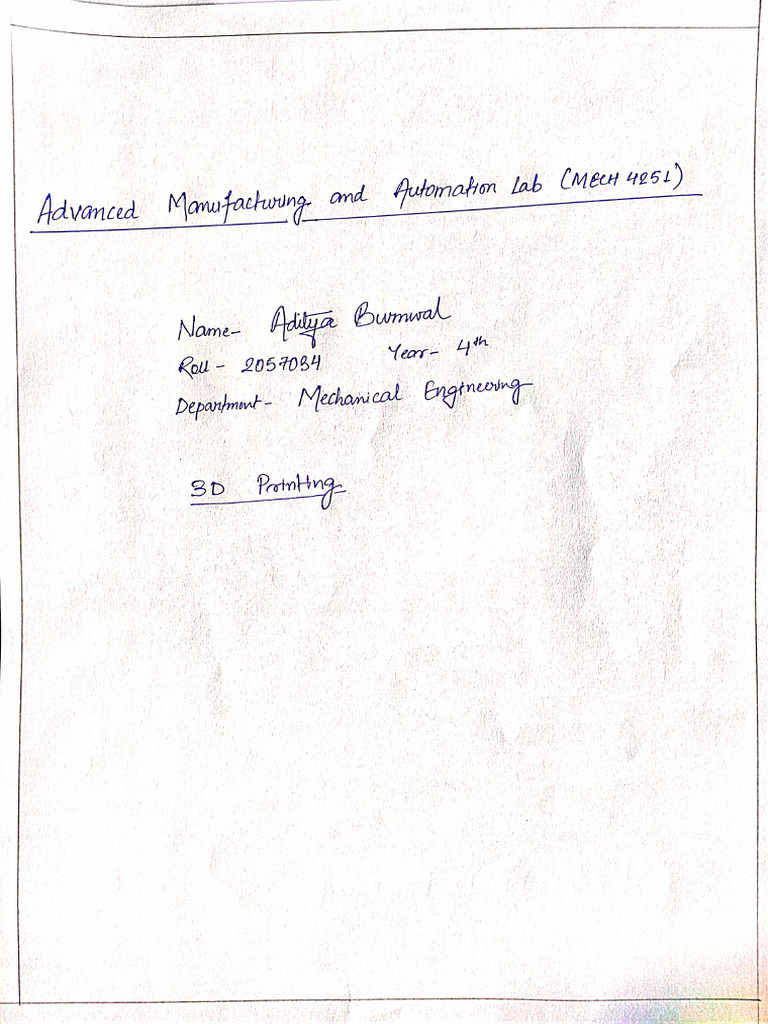 Advanced Manufacturing and Automation Lab (MECH 4251)
Name- Aditya Burnwal
Roll - 2057034 Year- 4th
Department- Mechanical Engineering
3D Printing